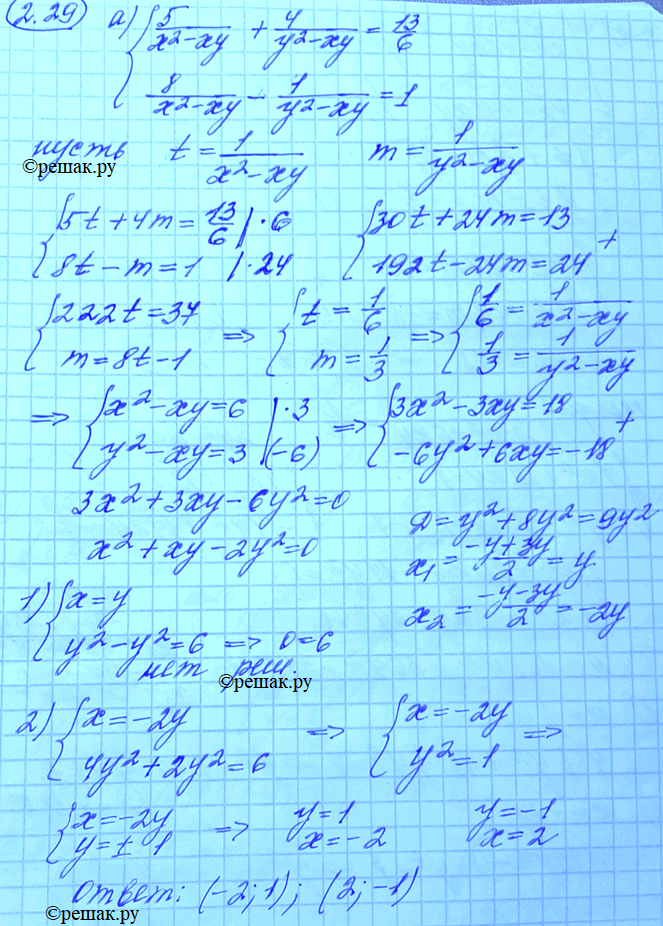 2.29 а) { 5/(x²-xy) + 4/(y²-xy) = 13/6
8/(x²-xy) - 1/(y²-xy) = 1
пусть t = 1/(x²-xy) m = 1/(y²-xy)
©решак.ру
{ 5t + 4m = 13/6 | ·6 { 30t + 24m = 13
8t - m = 1 | ·24 192t - 24m = 24 +
{ 222t = 37 => { t = 1/6 => { 1/6 = 1/(x²-xy)
m = 8t - 1 m = 1/3 1/3 = 1/(y²-xy)
=> { x² - xy = 6 | ·3 => { 3x² - 3xy = 18
y² - xy = 3 | (-6) -6y² + 6xy = -18 +
3x² + 3xy - 6y² = 0
x² + xy - 2y² = 0
D = y² + 8y² = 9y²
x₁ = (-y+3y)/2 = y
x₂ = (-y-3y)/2 = -2y
1) { x = y
y² - y² = 6 => 0 = 6
нет реш.
©решак.ру
2) { x = -2y => { x = -2y =>
4y² + 2y² = 6 y² = 1
{ x = -2y => y = 1 y = -1
y = ± 1 x = -2 x = 2
ответ: (-2; 1); (2; -1)
©решак.ру